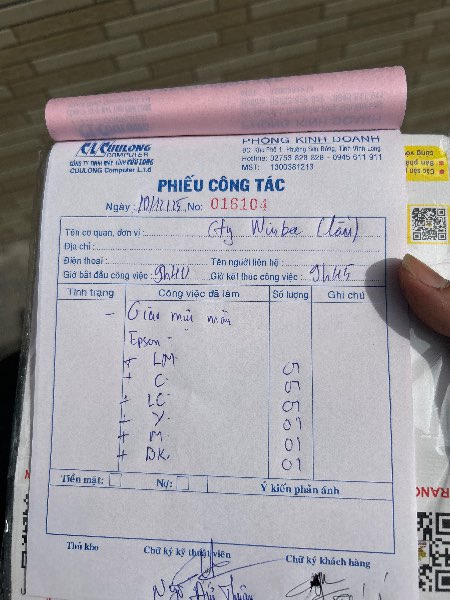 CL CUULONG
COMPUTER
CÔNG TY TNHH MÁY TÍNH CỬU LONG
CUULONG Computer L.t.d
PHÒNG KINH DOANH
Hotline: 02753 828 828 - 0945 611 911
MST: 1300381213
PHIẾU CÔNG TÁC
Ngày No: 016104
Tên cơ quan, đơn vị: Cty
Địa chỉ:
Điện thoại: Tên người liên hệ:
Giờ bắt đầu công việc: 9h40 Giờ kết thúc công việc: 9h45
Tình trạng Công việc đã làm Số lượng Ghi chú
- Giao mực
Epson
+ LM 05
+ C 05
+ LC 05
+ Y 01
+ M 01
+ BK 01
Tiền mặt: Nợ: Ý kiến phản ánh
Thủ kho Chữ ký kỹ thuật viên Chữ ký khách hàng